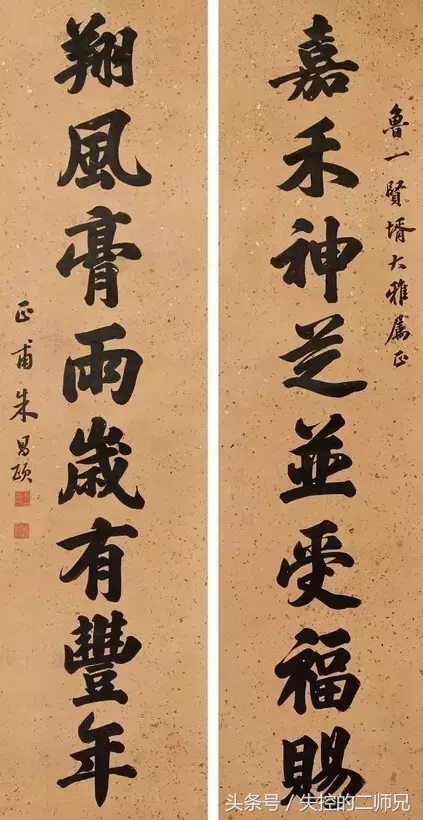 魯一賢壻大雅屬正
嘉禾神芝並受福賜
翔風膏雨歲有豐年
正甫朱昌頤
头条号/失控的二师兄